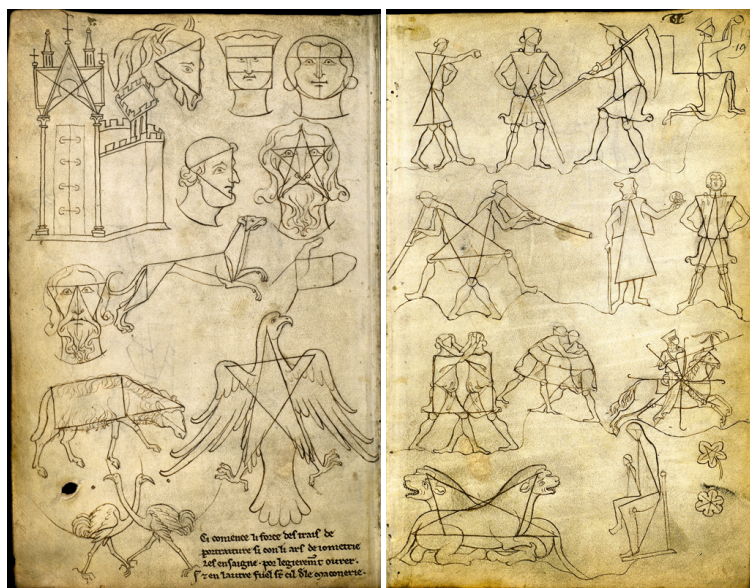 Ci comence li force des trais de
portraiture si con li ars de iometrie
les ensaigne . por legierem̄t ovrer .
⁊ en lautre fuel s̄t cil dele maconerie .
19